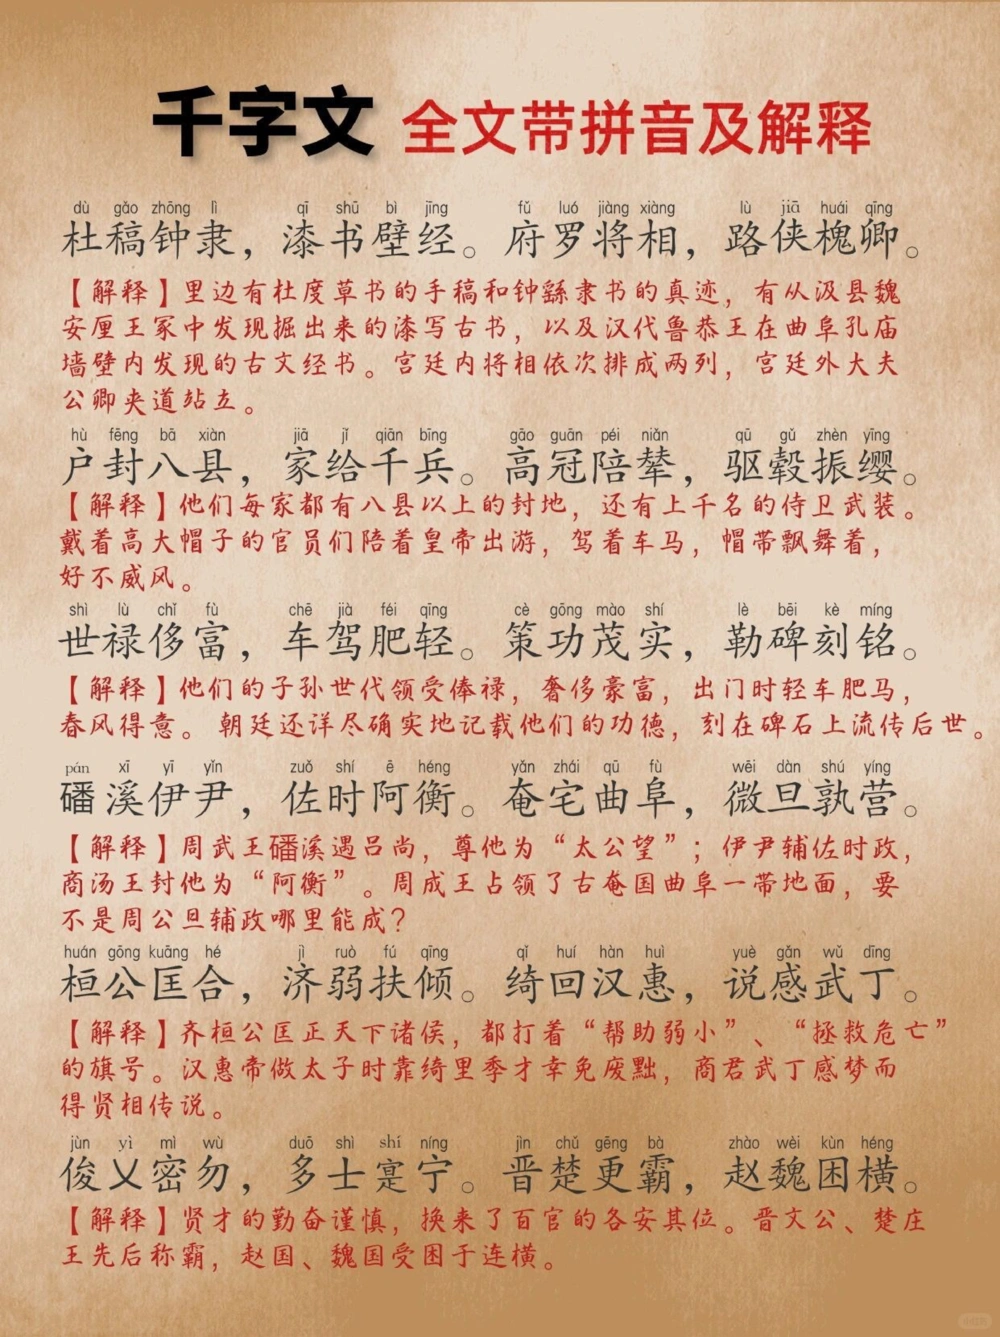 千字文 全文带拼音及解释
dù gǎo zhōng lì qī shū bì jīng fǔ luó jiàng xiàng lù jiā huái qīng
杜稿钟隶，漆书壁经。府罗将相，路侠槐卿。
【解释】里边有杜度草书的手稿和钟繇隶书的真迹，有从汲县魏
安厘王冢中发现掘出来的漆写古书，以及汉代鲁恭王在曲阜孔庙
墙壁内发现的古文经书。宫廷内将相依次排成两列，宫廷外大夫
公卿夹道站立。
hù fēng bā xiàn jiā jǐ qiān bīng gāo guān péi niǎn qū gǔ zhèn yīng
户封八县，家给千兵。高冠陪辇，驱毂振缨。
【解释】他们每家都有八县以上的封地，还有上千名的侍卫武装。
戴着高大帽子的官员们陪着皇帝出游，驾着车马，帽带飘舞着，
好不威风。
shì lù chǐ fù chē jià féi qīng cè gōng mào shí lè bēi kè míng
世禄侈富，车驾肥轻。策功茂实，勒碑刻铭。
【解释】他们的子孙世代领受俸禄，奢侈豪富，出门时轻车肥马，
春风得意。朝廷还详尽确实地记载他们的功德，刻在碑石上流传后世。
pán xī yī yǐn zuǒ shí ē héng yǎn zhái qū fù wēi dàn shú yíng
磻溪伊尹，佐时阿衡。奄宅曲阜，微旦孰营。
【解释】周武王磻溪遇吕尚，尊他为“太公望”；伊尹辅佐时政，
商汤王封他为“阿衡”。周成王占领了古奄国曲阜一带地面，要
不是周公旦辅政哪里能成？
huán gōng kuāng hé jì ruò fú qīng qǐ huí hàn huì yuè gǎn wǔ dīng
桓公匡合，济弱扶倾。绮回汉惠，说感武丁。
【解释】齐桓公匡正天下诸侯，都打着“帮助弱小”、“拯救危亡”
的旗号。汉惠帝做太子时靠绮里季才幸免废黜，商君武丁感梦而
得贤相传说。
jùn yì mì wù duō shì shí níng jìn chǔ gēng bà zhào wèi kùn héng
俊乂密勿，多士寔宁。晋楚更霸，赵魏困横。
【解释】贤才的勤奋谨慎，换来了百官的各安其位。晋文公、楚庄
王先后称霸，赵国、魏国受困于连横。